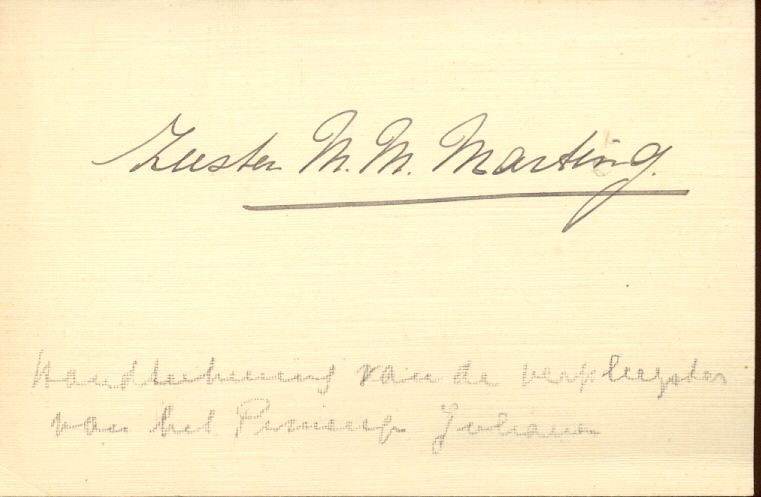 Zuster M. M. Marting.
Handteekening van de verpleegster
van het Prinsesje Juliana